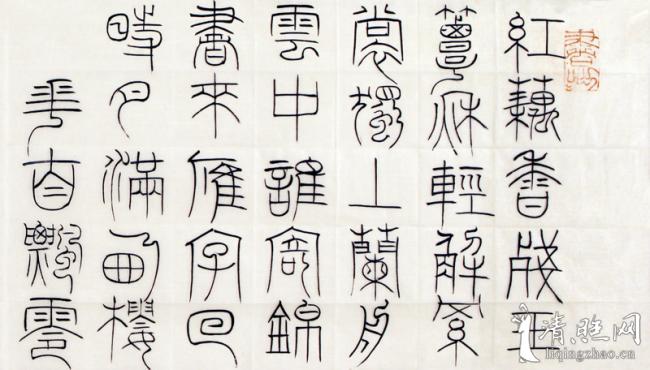 紅藕香殘玉
簟秋輕解羅
裳獨上蘭舟
雲中誰寄錦
書來雁字回
時月滿西樓
華自飄零
清照网
liqingzhao.com